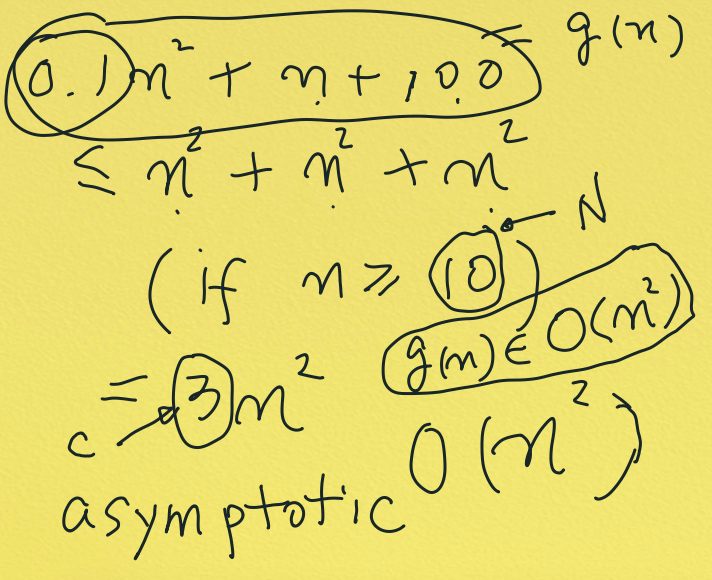 0.1n² + n + 100 = g(n)
≤ n² + n² + n²
(if n ≥ 10) ← N
g(n) ∈ O(n²)
c → = 3n²
O(n²)
asymptotic